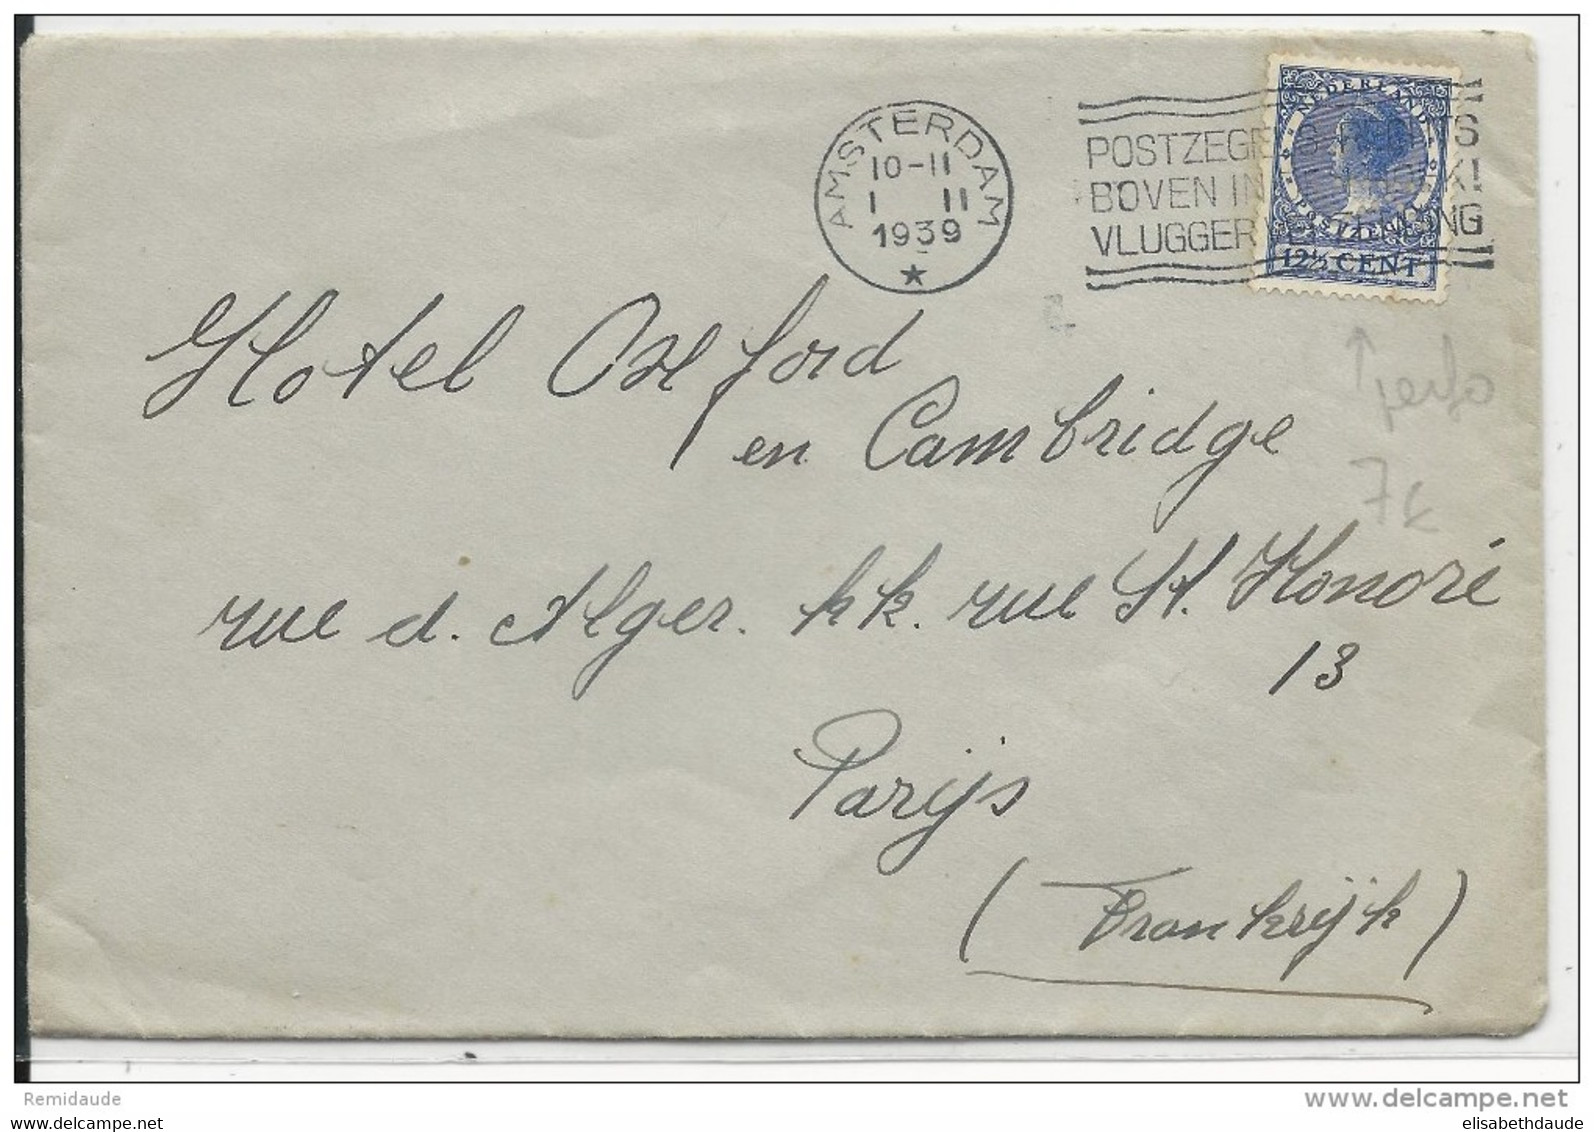 AMSTERDAM
10-11
1 II
1939
POSTZEGELS RECHTS
BOVEN IN DE HOEK!
VLUGGER VERZENDING
NEDERLAND
POSTZEGEL
12½ CENT
perfo
7€
Hotel Oxford
en Cambridge
rue d. Alger. hk. rue St. Honoré
13
Parijs
(Frankrijk)
Remidaude
www.delcampe.net
elisabethdaude